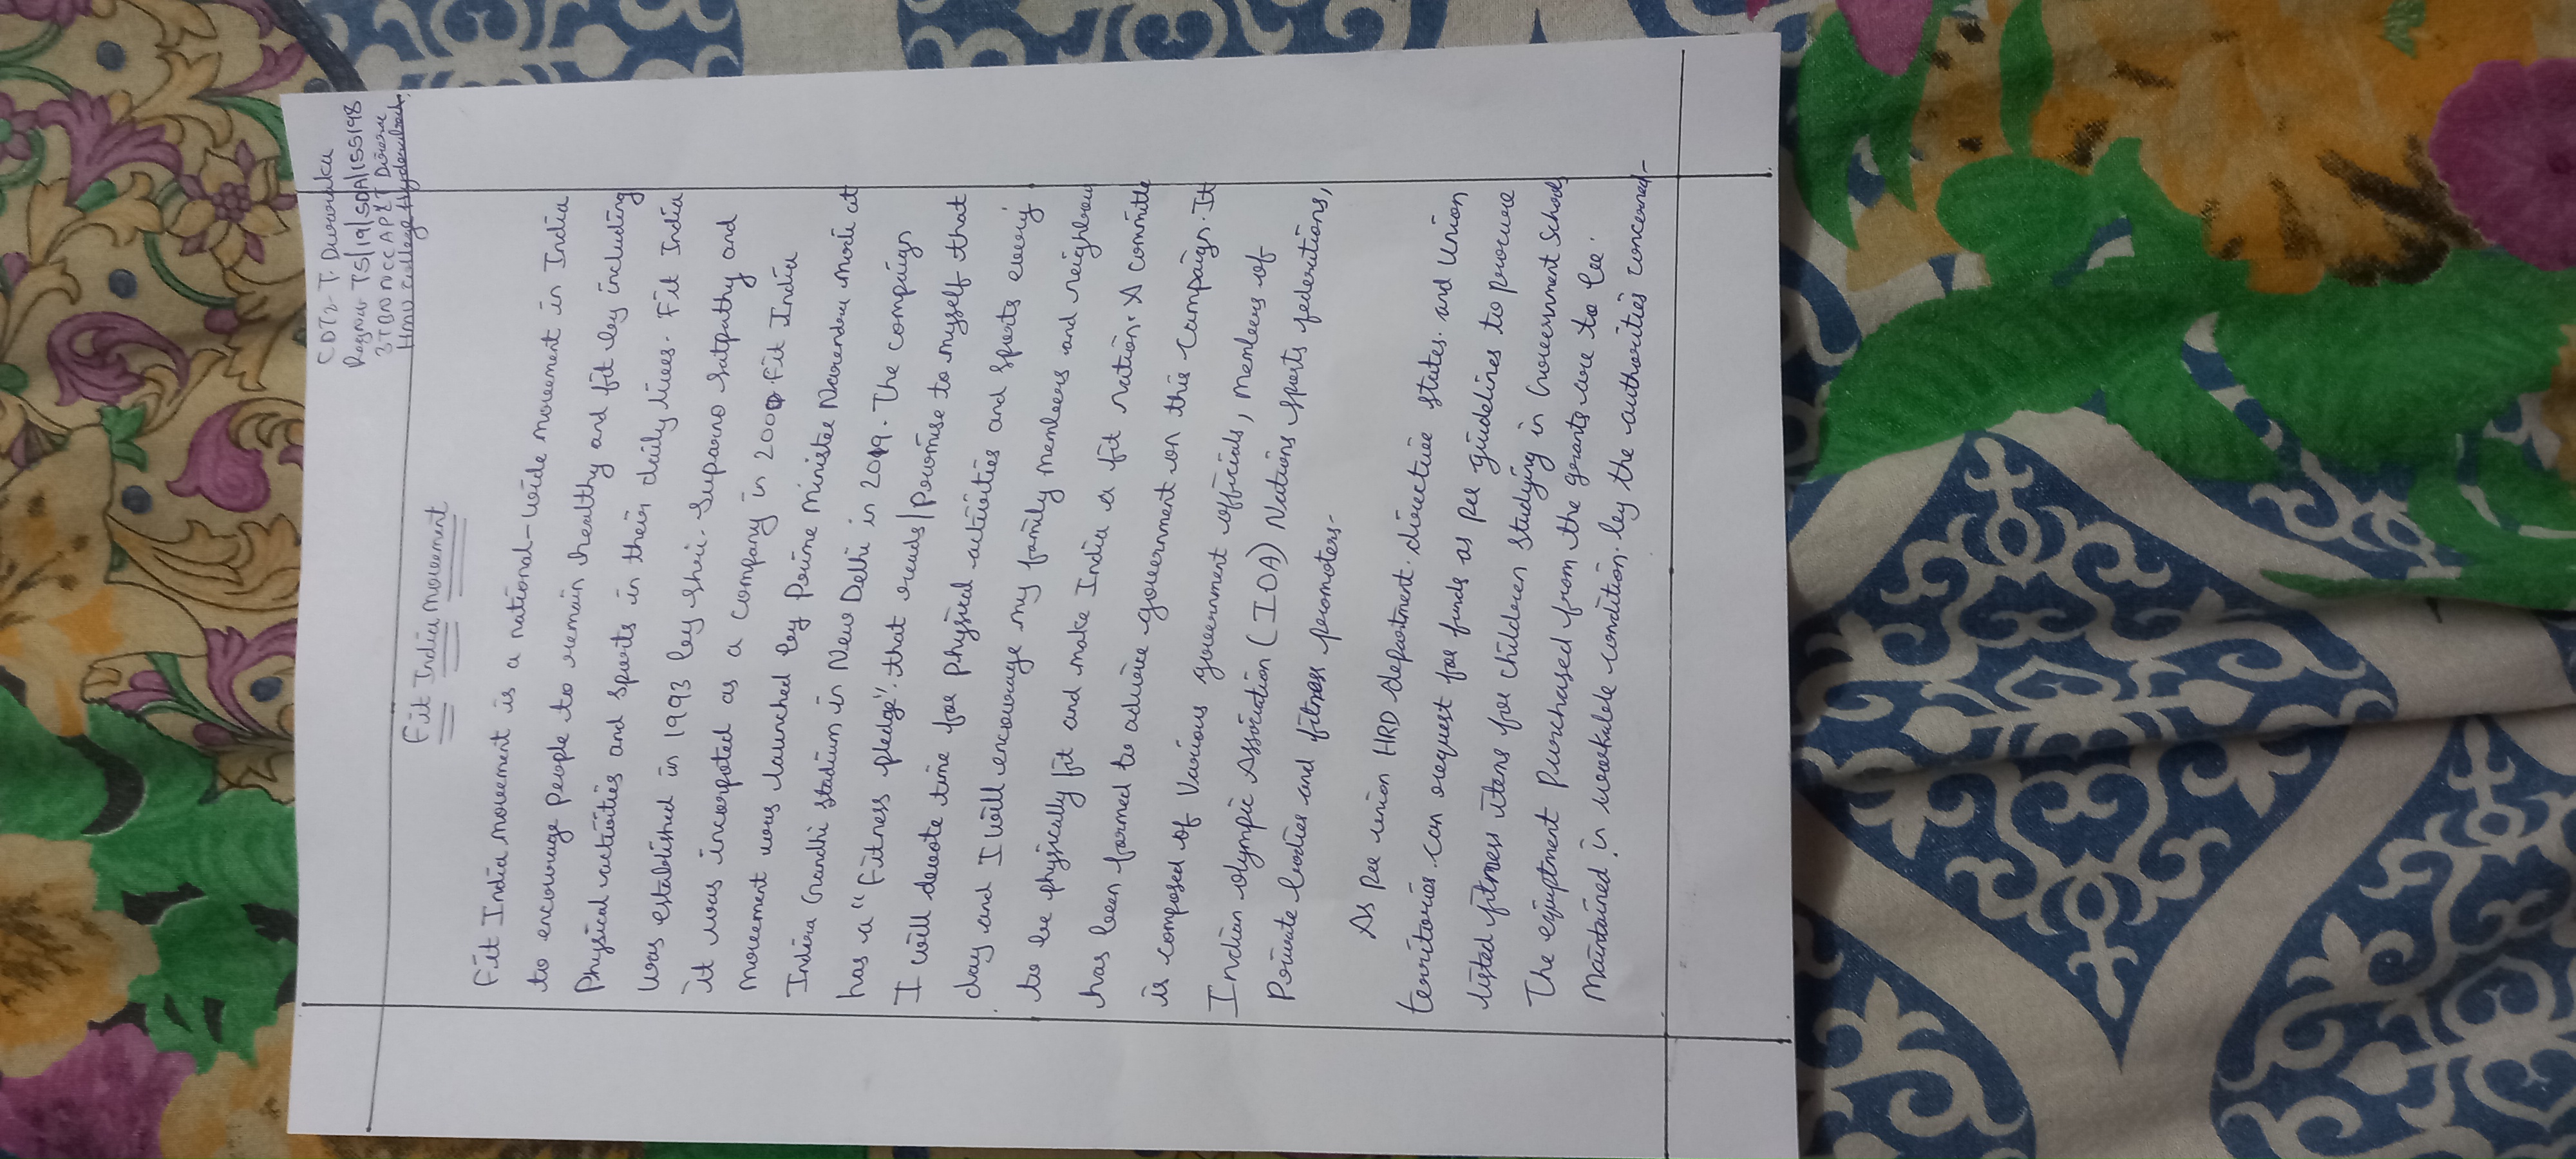 CDT:- T. Dwaraka
Reg no: TS|19|SDA|155198
3TBN NCC APXT Direc
HMV college Hyderabad.
Fit India movement
Fit India movement is a national-wide movement in India
to encourage people to remain healthy and fit by including
Physical activities and sports in their daily lives. Fit India
was established in 1993 by shri. Suparno Satpathy and
it was incorpated as a company in 2000. Fit India
movement was launched by Prime Minister Narendra Modi at
Indira Gandhi stadium in New Delhi in 2019. The campaign
has a "Fitness pledge". that reads|Promise to myself that
I will devote time for physical activities and sports every
day and I will encourage my family members and neighbou
to be physically fit and make India a fit nation. A committe
has been formed to advice government on this campaign. It
is composed of Various government officials, Members of
Indian olympic Association (IOA) Nations sports federitions,
Private bodies and fitness promoters.
As per union HRD department. directive states. and Union
territories. can request for funds as per guidelines to procure
listed fitness items for children Studying in Government Schools
The equiptment Purchased from the grants are to be.
Maintained. in workable condition. by the authorities concerned.